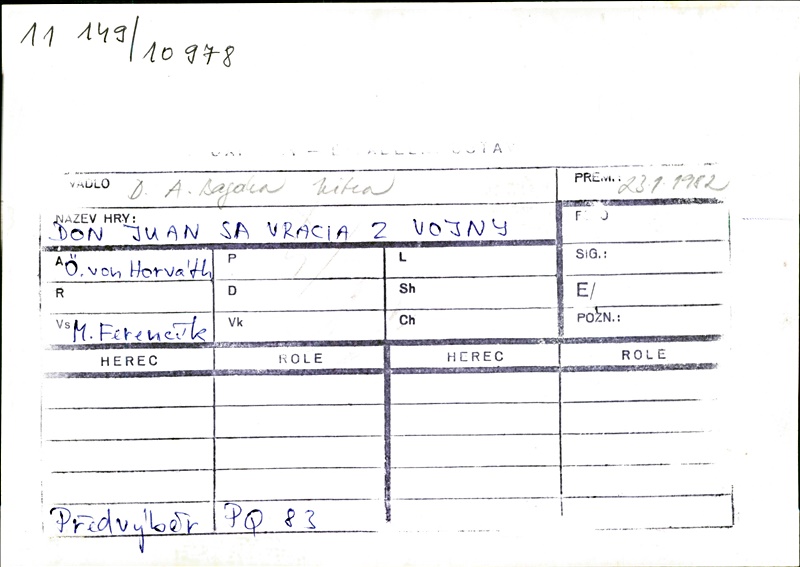 11 149/10 978
VADLO D. A. Bagdra Nitra PREM.: 23.1.1982
NÁZEV HRY:
DON JUAN SA VRACIA Z VOJNY
A Ö. von Horváth P L SIG.:
R D Sh E/
Vs M. Ferenčík Vk Ch POZN.:
HEREC ROLE HEREC ROLE
Předvýběr PQ 83